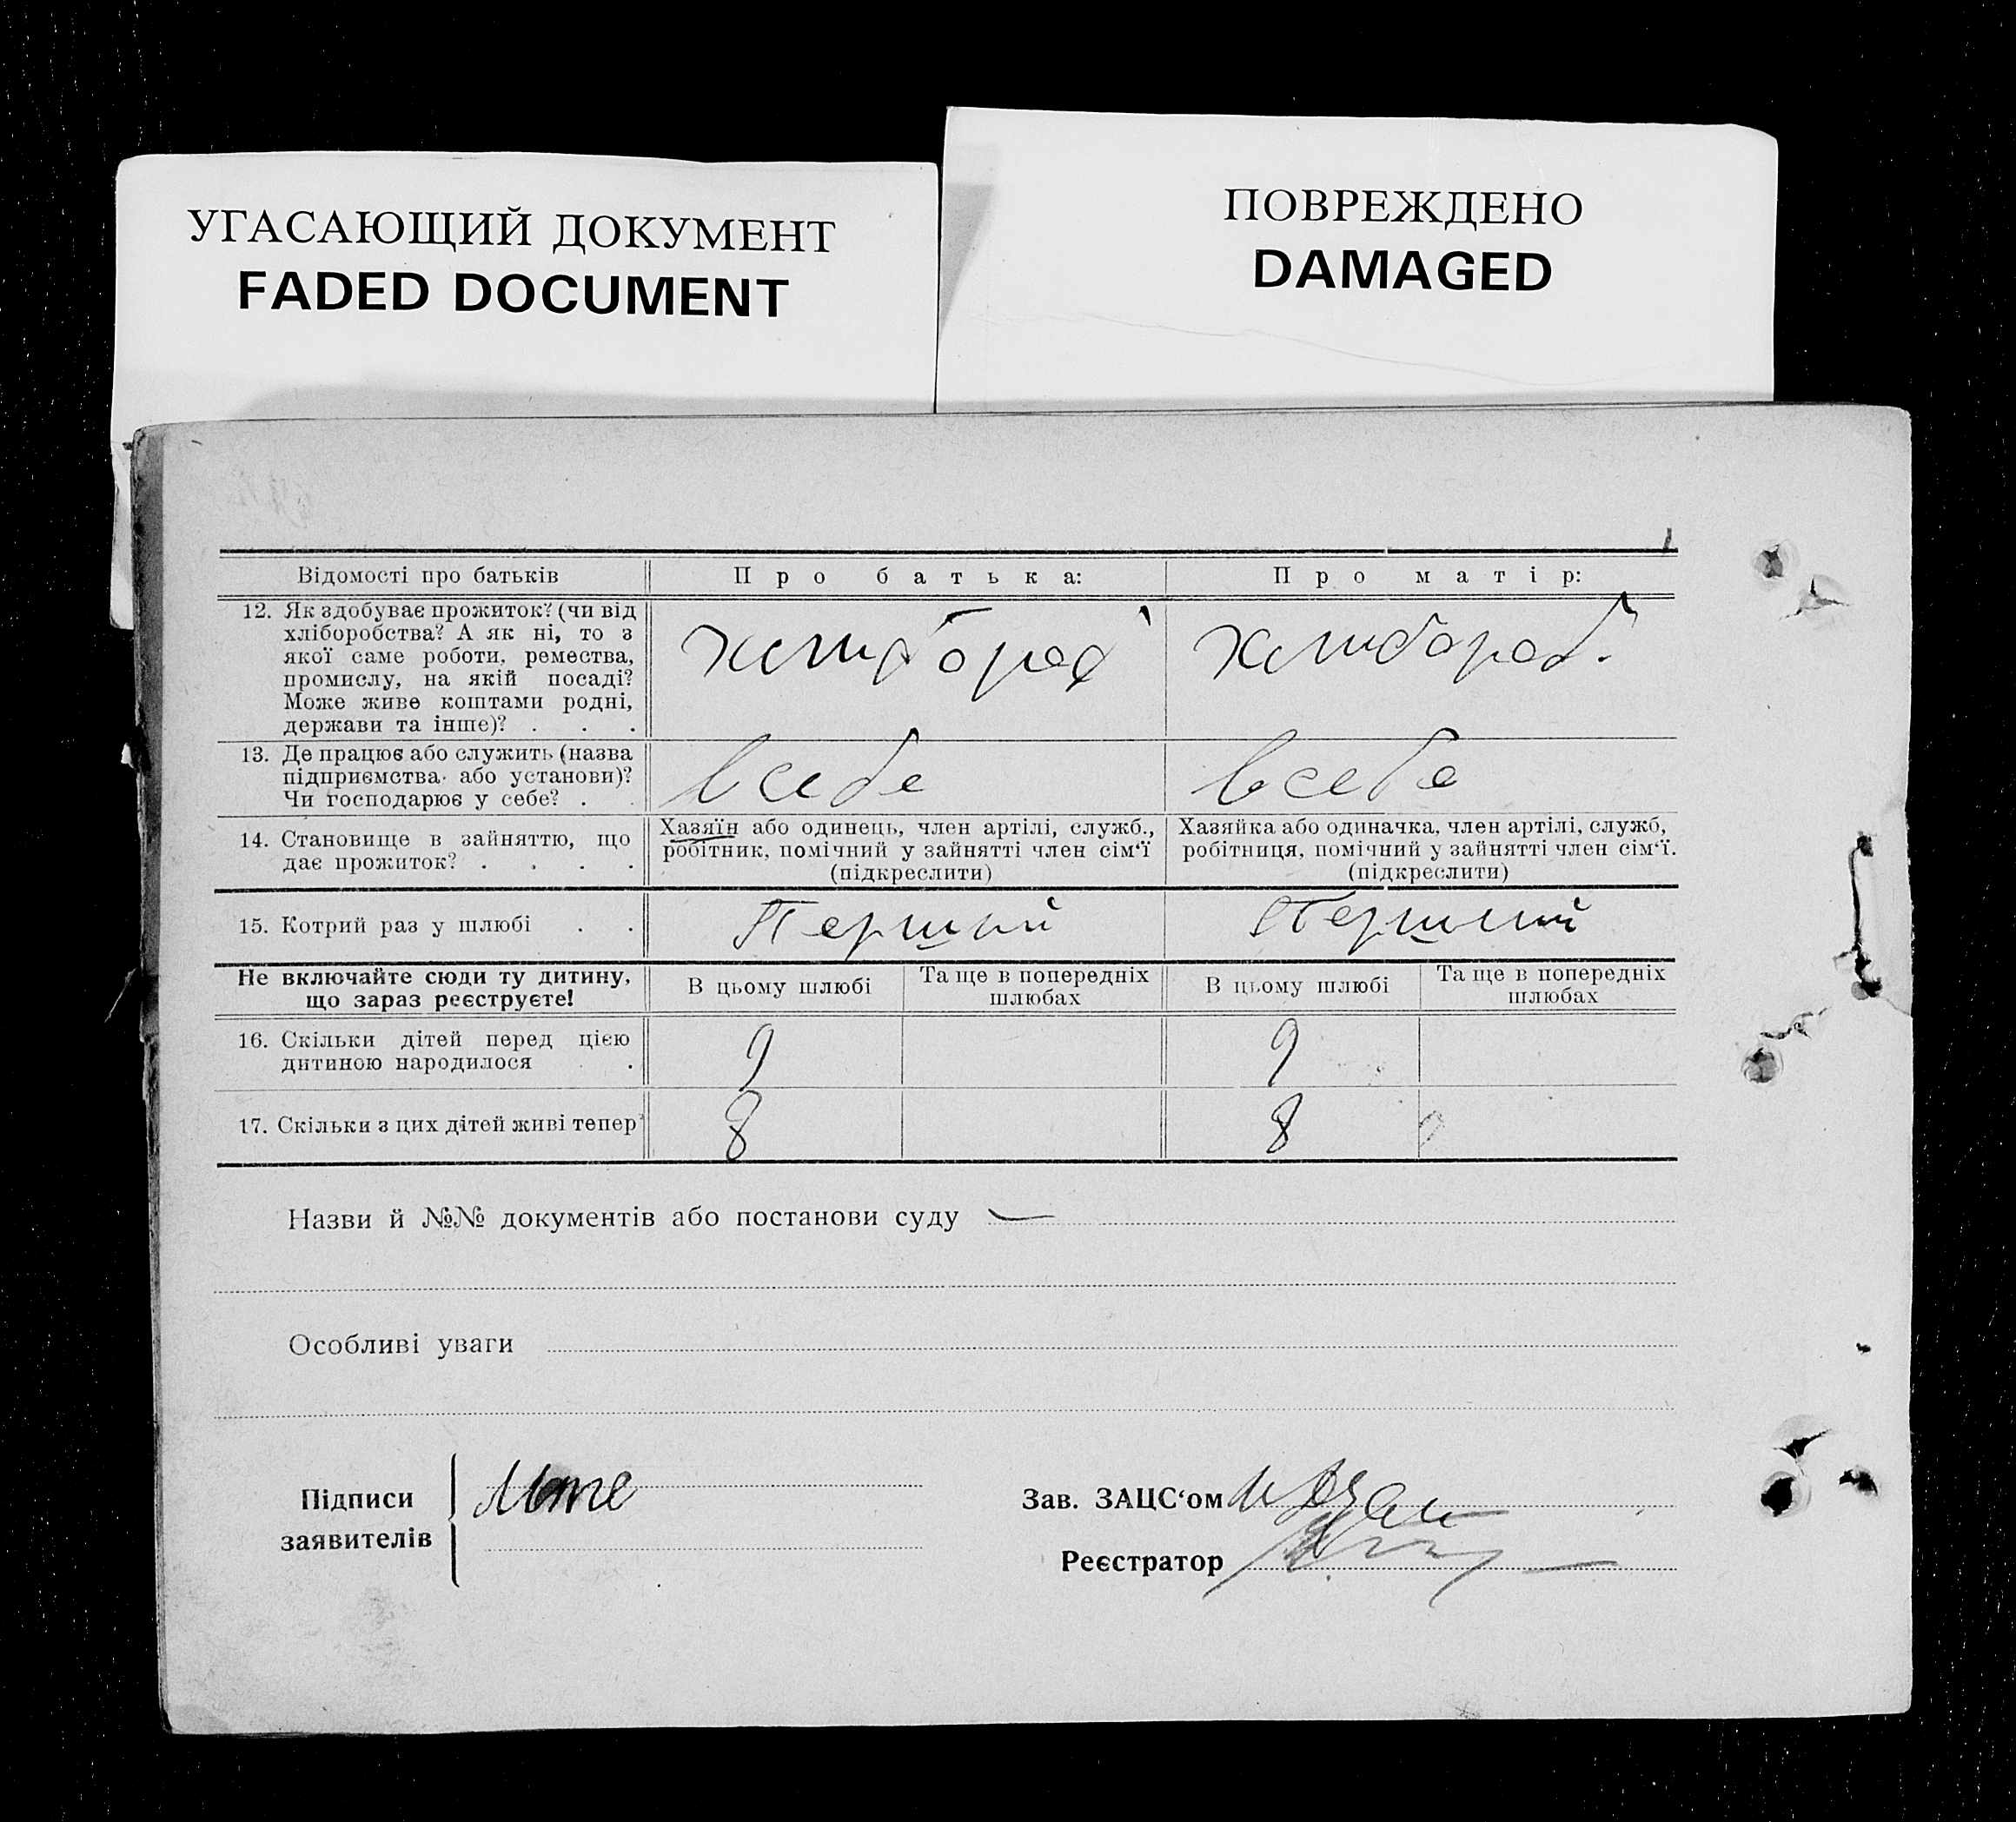 УГАСАЮЩИЙ ДОКУМЕНТ
FADED DOCUMENT
ПОВРЕЖДЕНО
DAMAGED
Відомості про батьків
Про батька:
Про матір:
12. Як здобуває прожиток? (чи від
хліборобства? А як ні, то з
якої саме роботи, ремества,
промислу, на якій посаді?
Може живе коштами родні,
держави та інше)? . . .
хлибороб
хлибороб.
13. Де працює або служить (назва
підприємства або установи)?
Чи господарює у себе? . .
в себе
в себе
14. Становище в зайняттю, що
дає прожиток? . . . .
Хазяїн або одинець, член артілі, служб.,
робітник, помічний у зайнятті член сім‘ї
(підкреслити)
Хазяйка або одиначка, член артілі, служб,
робітниця, помічний у зайнятті член сім‘ї.
(підкреслити)
15. Котрий раз у шлюбі . .
Перший
Перший
Не включайте сюди ту дитину,
що зараз реєструєте!
В цьому шлюбі
Та ще в попередніх
шлюбах
В цьому шлюбі
Та ще в попередніх
шлюбах
16. Скільки дітей перед цією
дитиною народилося .
9
9
17. Скільки з цих дітей живі тепер
8
8
Назви й №№ документів або постанови суду —
Особливі уваги
Підписи
заявителів
Зав. ЗАЦС‘ом
Реєстратор